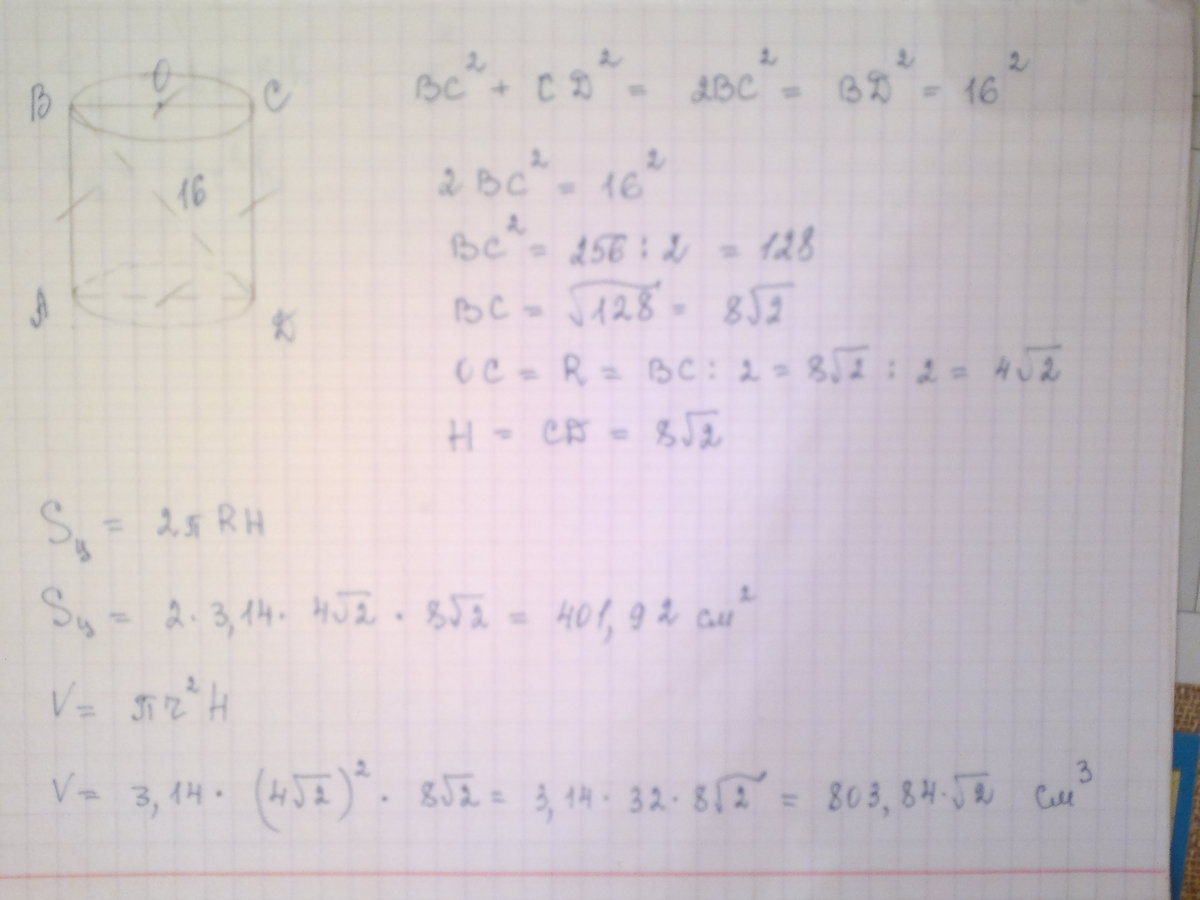 B O C
16
A D
BC² + CD² = 2BC² = BD² = 16²
2BC² = 16²
BC² = 256 : 2 = 128
BC = √128 = 8√2
OC = R = BC : 2 = 8√2 : 2 = 4√2
H = CD = 8√2
Sц = 2πRH
Sц = 2·3,14· 4√2 · 8√2 = 401,92 см²
V = πr²H
V = 3,14· (4√2)² · 8√2 = 3,14·32·8√2 = 803,84·√2 см³